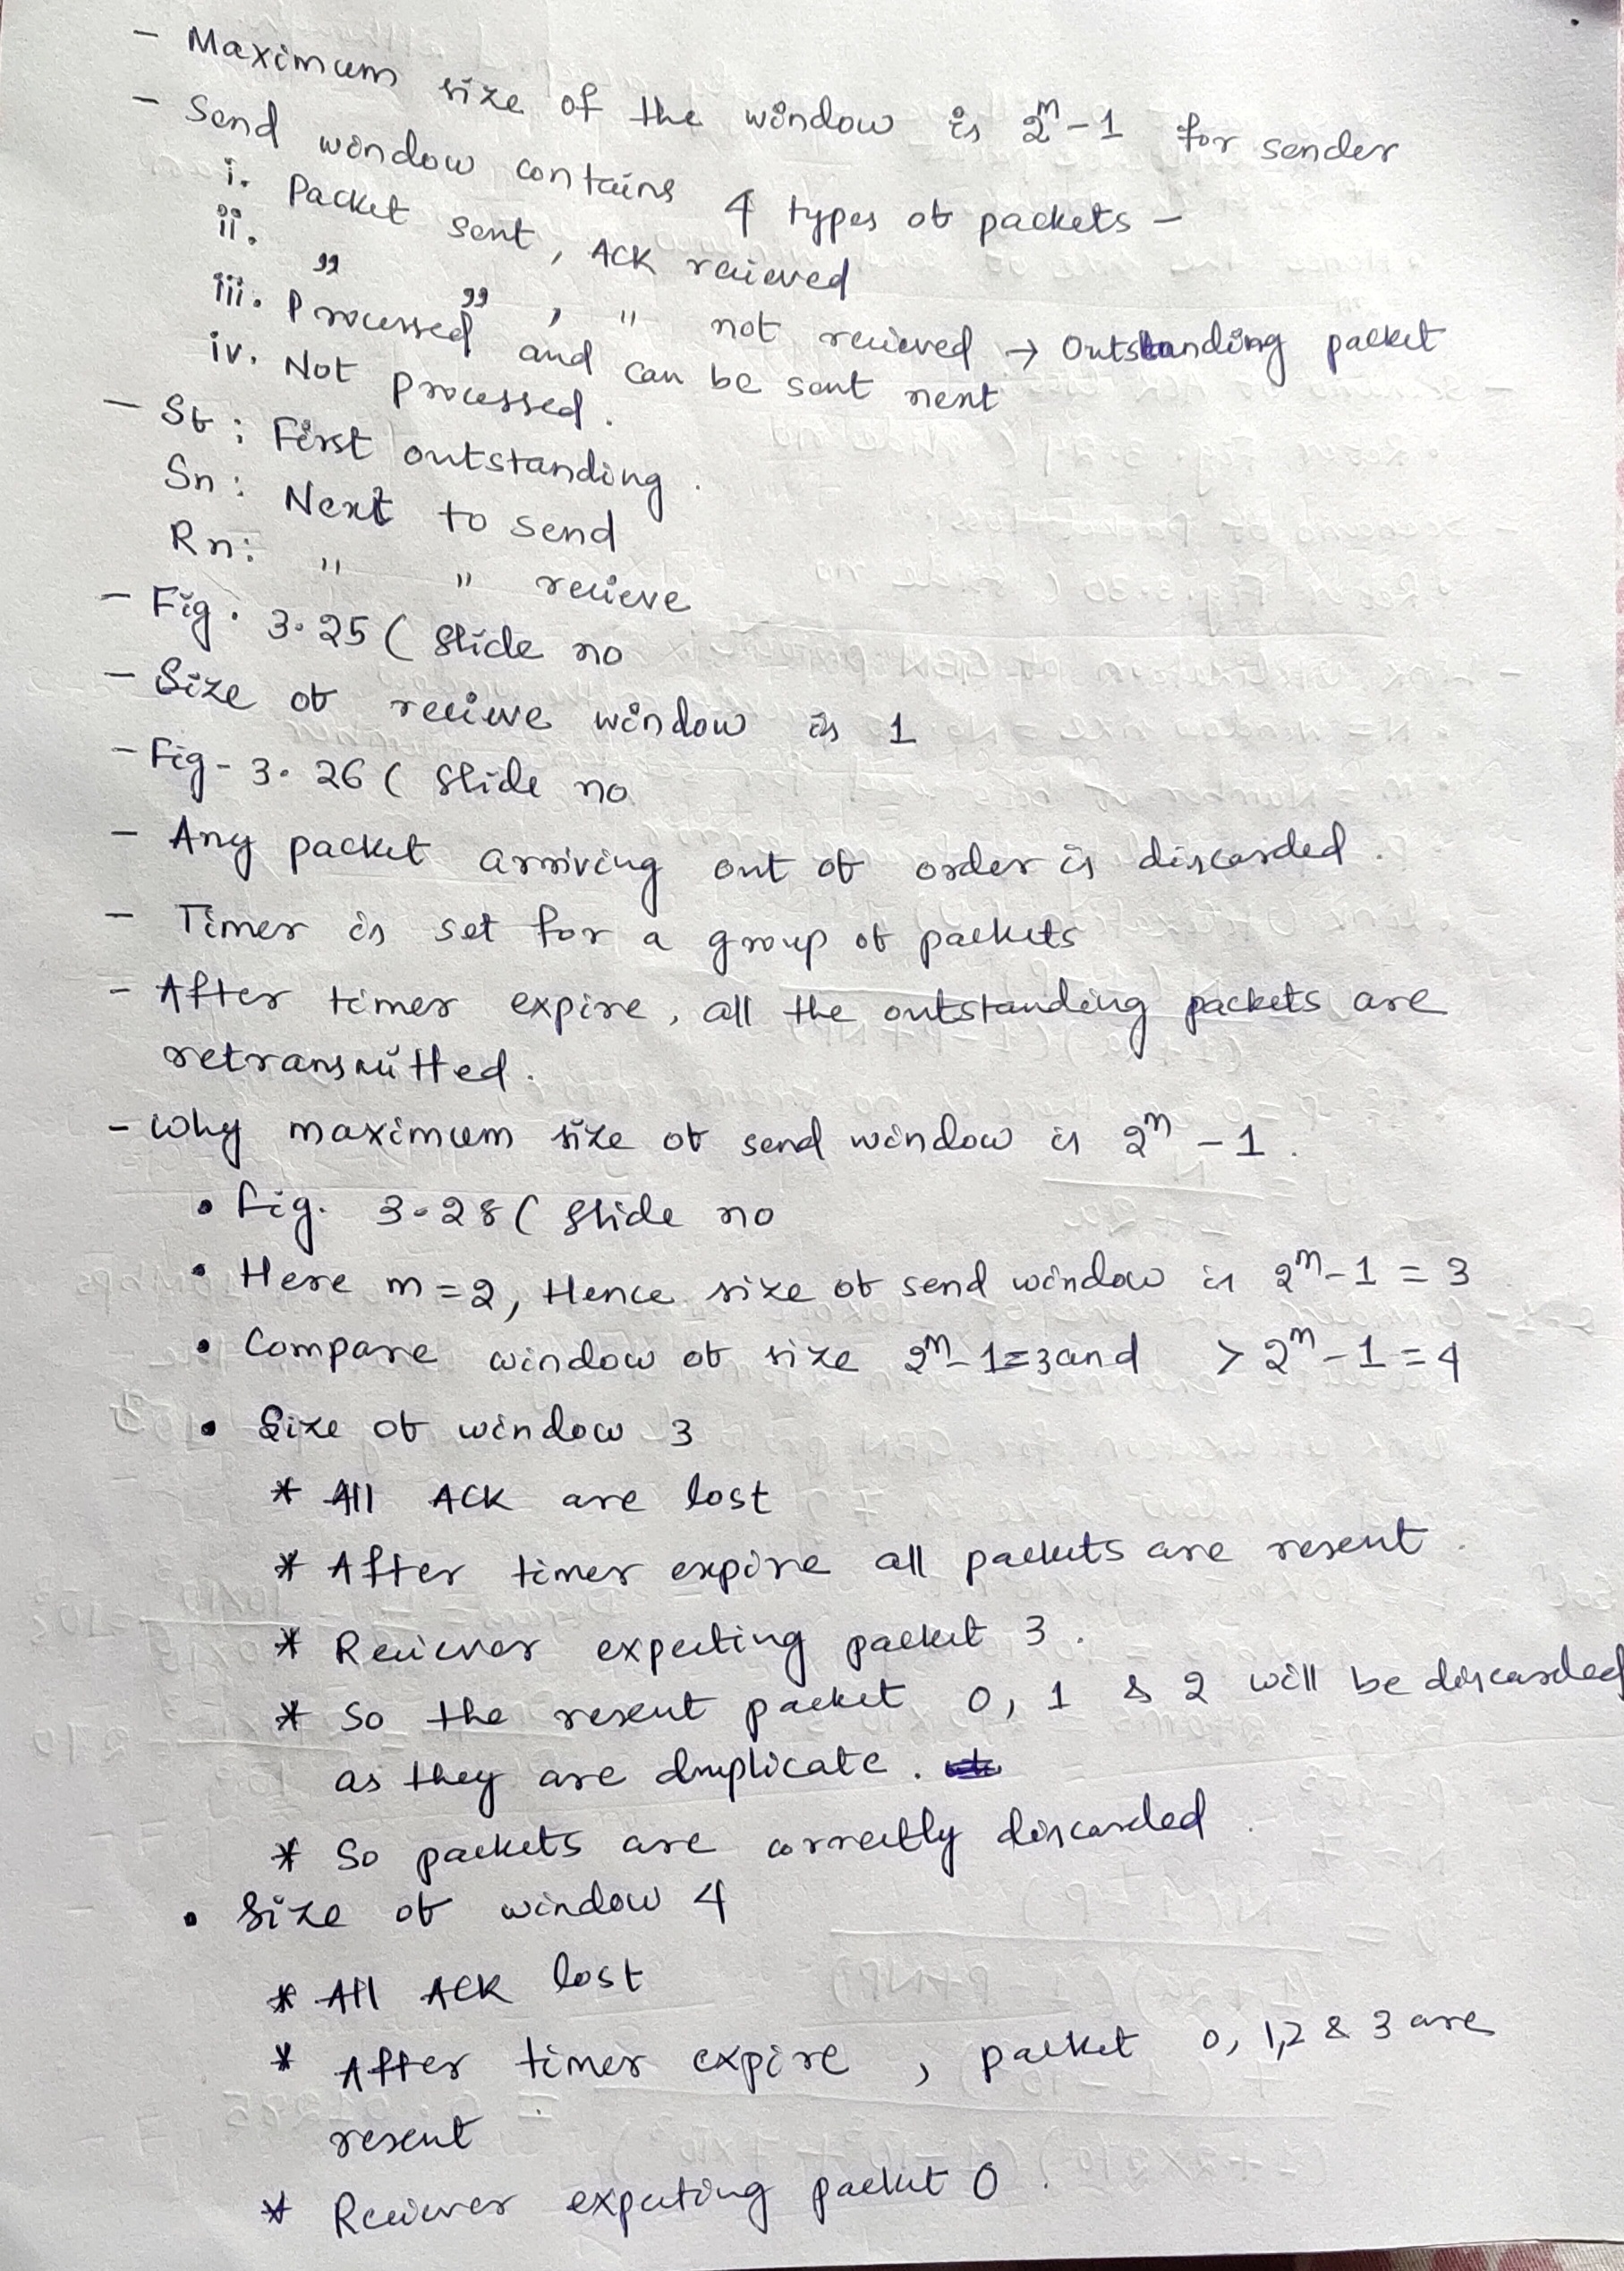 - Maximum size of the window is 2^m - 1 for sender
- Send window contains 4 types of packets -
i. Packet sent, ACK recieved
ii. " " , " not recieved → Outstanding packet
iii. Processed and can be sent next
iv. Not processed.
- Sf : First outstanding.
Sn : Next to send
Rn : " " recieve
- Fig. 3.25 ( Slide no
- Size of recieve window is 1
- Fig - 3.26 ( Slide no
- Any packet arriving out of order is discarded.
- Timer is set for a group of packets
- After timer expire, all the outstanding packets are
retransmitted.
- Why maximum size of send window is 2^m - 1.
• Fig. 3.28 ( Slide no
• Here m = 2, Hence size of send window is 2^m - 1 = 3
• Compare window of size 2^m - 1 = 3 and > 2^m - 1 = 4
• Size of window 3
* All ACK are lost
* After timer expire all packets are resent.
* Reciever expecting packet 3.
* So the resent packet 0, 1 & 2 will be discarded
as they are duplicate.
* So packets are correctly discarded.
• Size of window 4
* All ACK lost
* After timer expire, packet 0, 1,2 & 3 are
resent
* Reciever expecting packet 0.